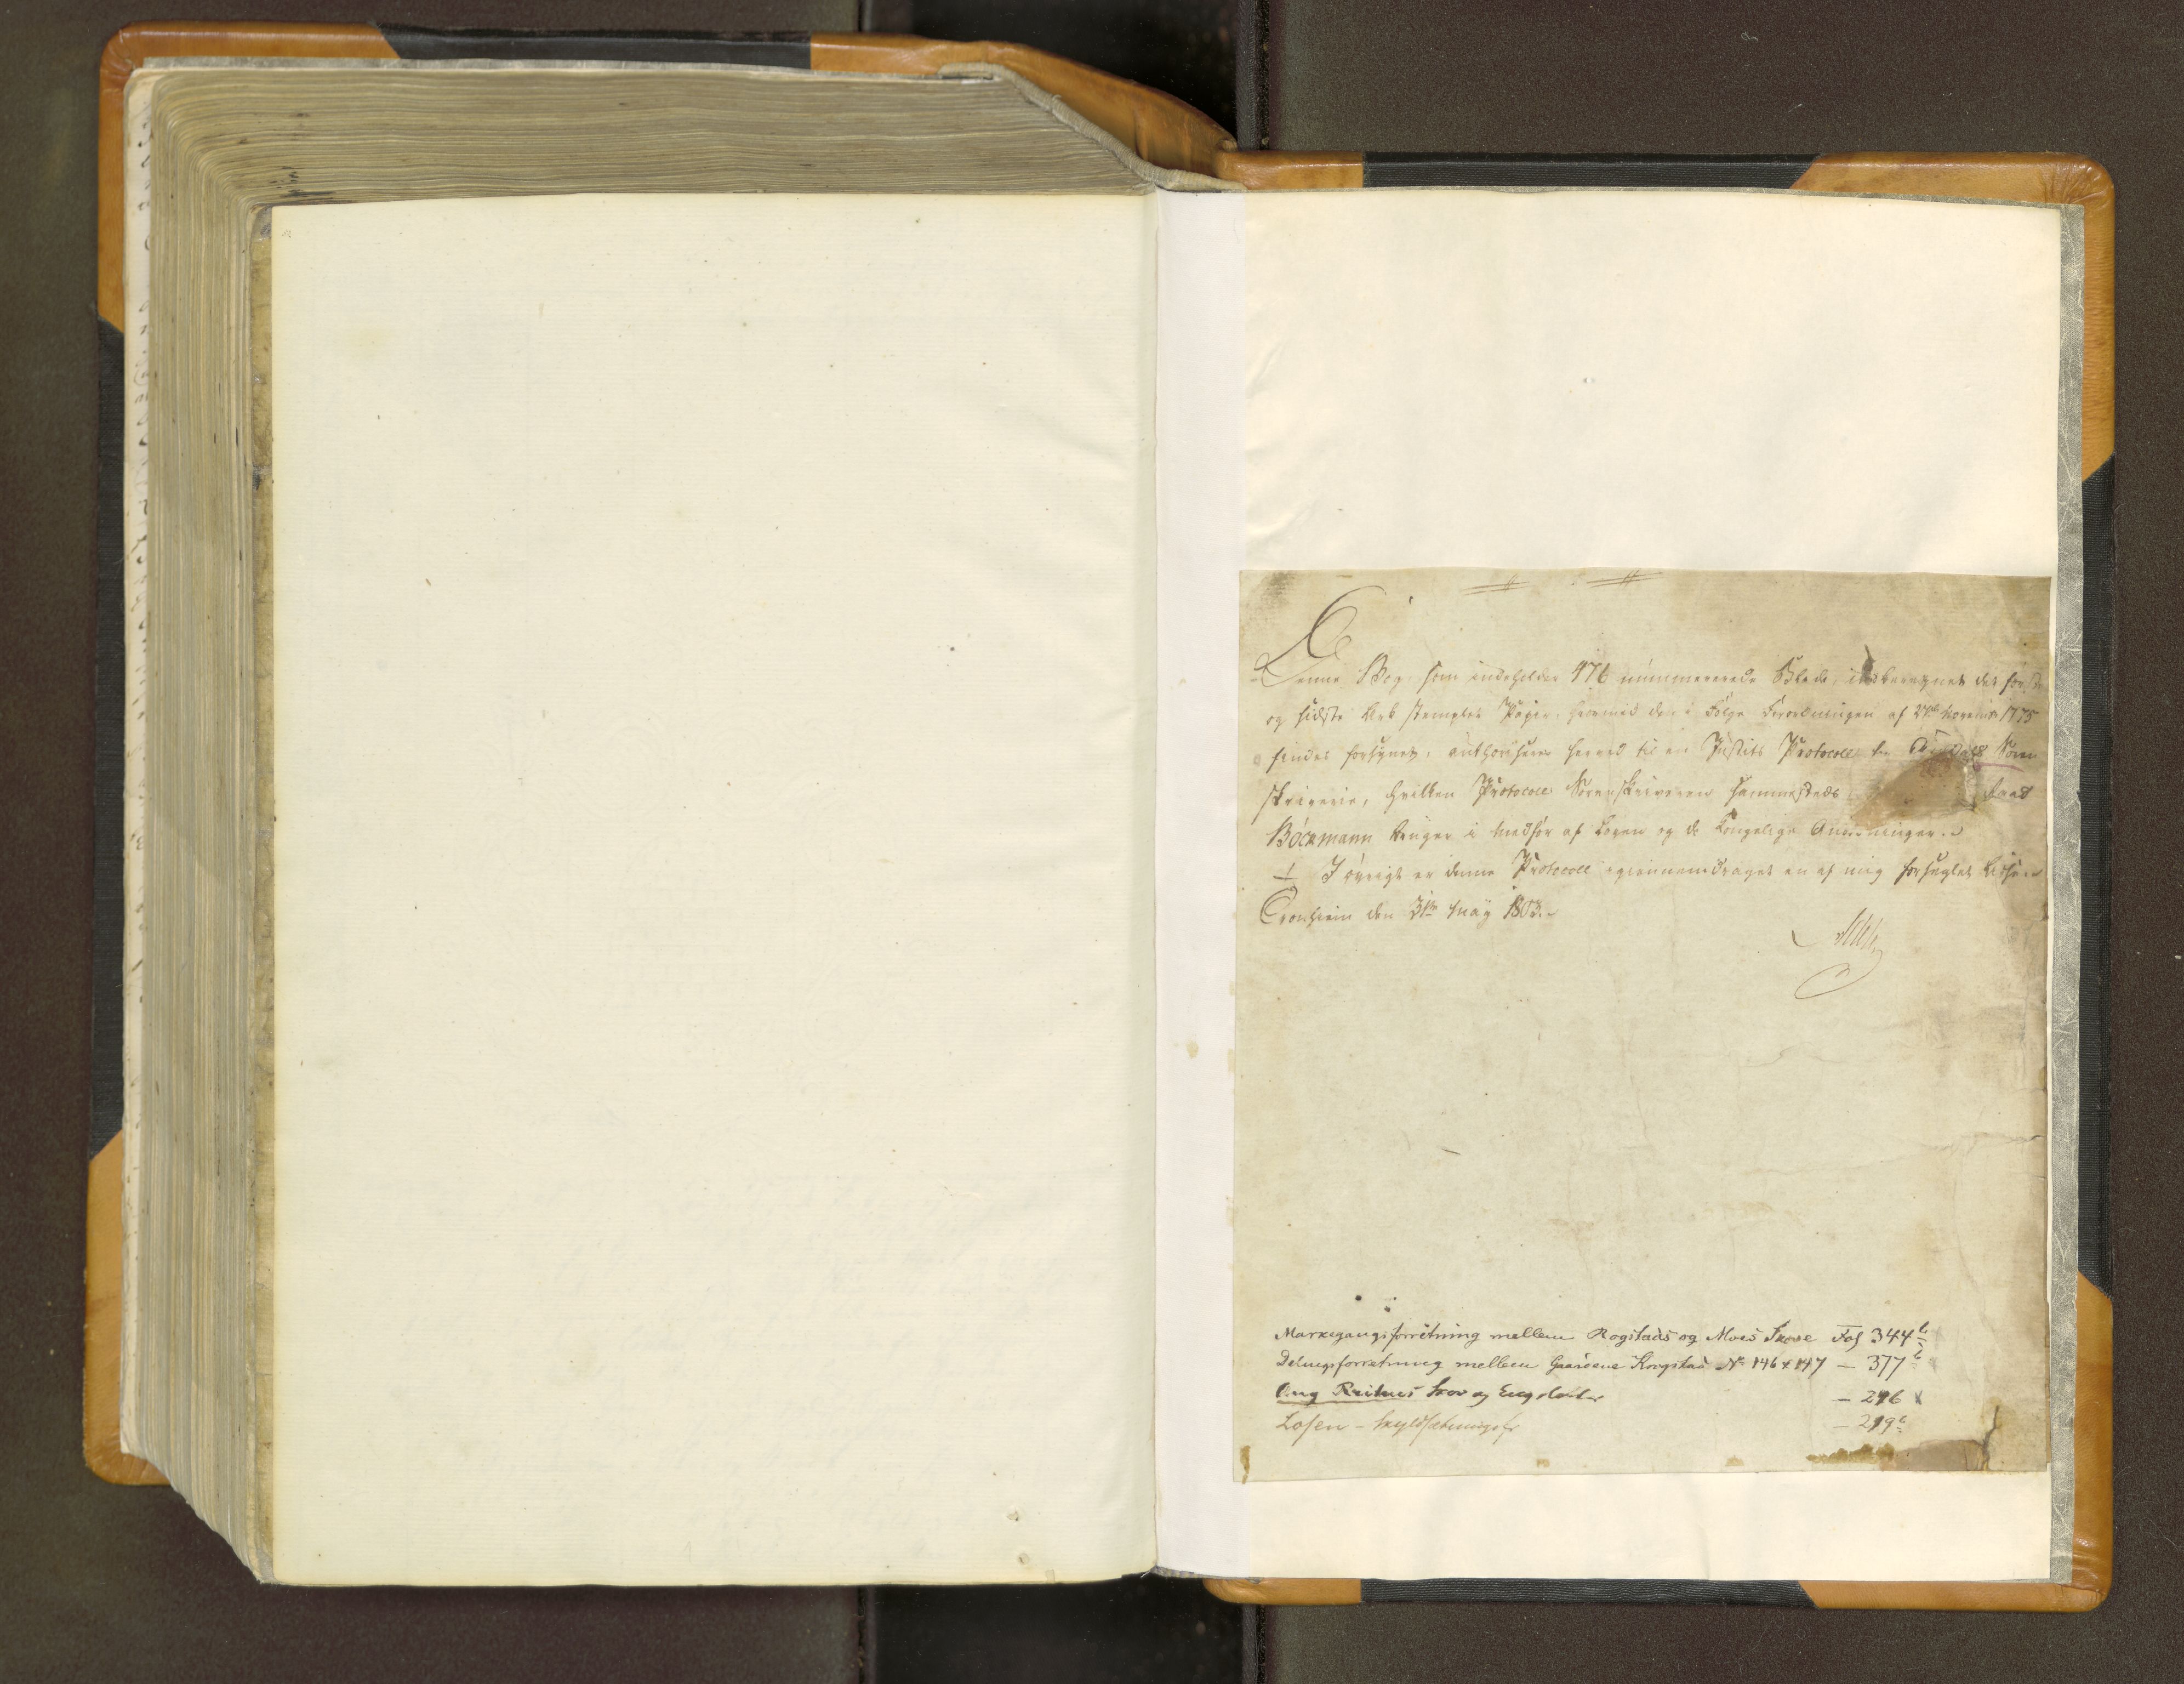 Denne Bog, som indeholder 476 nummererede Blade, indberegnet det første
og sidste Ark stemplet Papir, hvormed den i Følge Forordningen af 27de Novembr 1775
findes forsynet, authoriseres herved til en Justits Protocoll for Soren
skriverie, hvilken Protocoll Sorenskriveren sammesteds
Böckmann bruger i Medför af Loven og de Kongelige Anordninger.
I övrigt er denne Protocoll igiennemdraget en af mig forseglet
Tronhiem den 31te May 1803.
Markegangsforretning mellem Rogstads og Moes Skove Fol 344b
Delingsforretning mellem Gaardene Krogstad No 146 & 147 — 377b
Ang Reitnes Skov og Engslaatter — 246 x
Lossen - Skyldsætningsfr — 219b